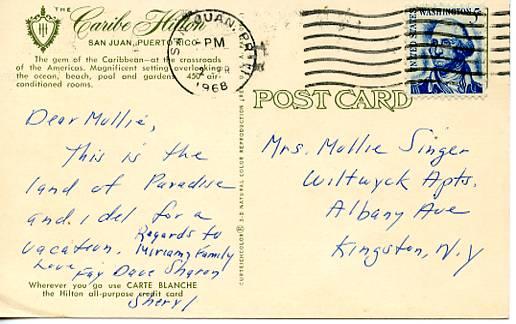 THE
Caribe Hilton
SAN JUAN, PUERTO RICO
The gem of the Caribbean—at the crossroads
of the Americas. Magnificent setting overlooking
the ocean, beach, pool and gardens. 450 air-
conditioned rooms.
Dear Mollie,
This is the
land of Paradise
and ideal for a
vacation. Regards to
Miriam & Family
Love Fay Dave Sharon
Sheryl
Wherever you go use CARTE BLANCHE
the Hilton all-purpose credit card
CURTEICHCOLOR® 3-D NATURAL COLOR REPRODUCTION
SAN JUAN, P.R.
PM
1968
UNITED STATES
WASHINGTON 5c
POST CARD
Mrs. Mollie Singer
Wiltwyck Apts.
Albany Ave
Kingston, N.Y